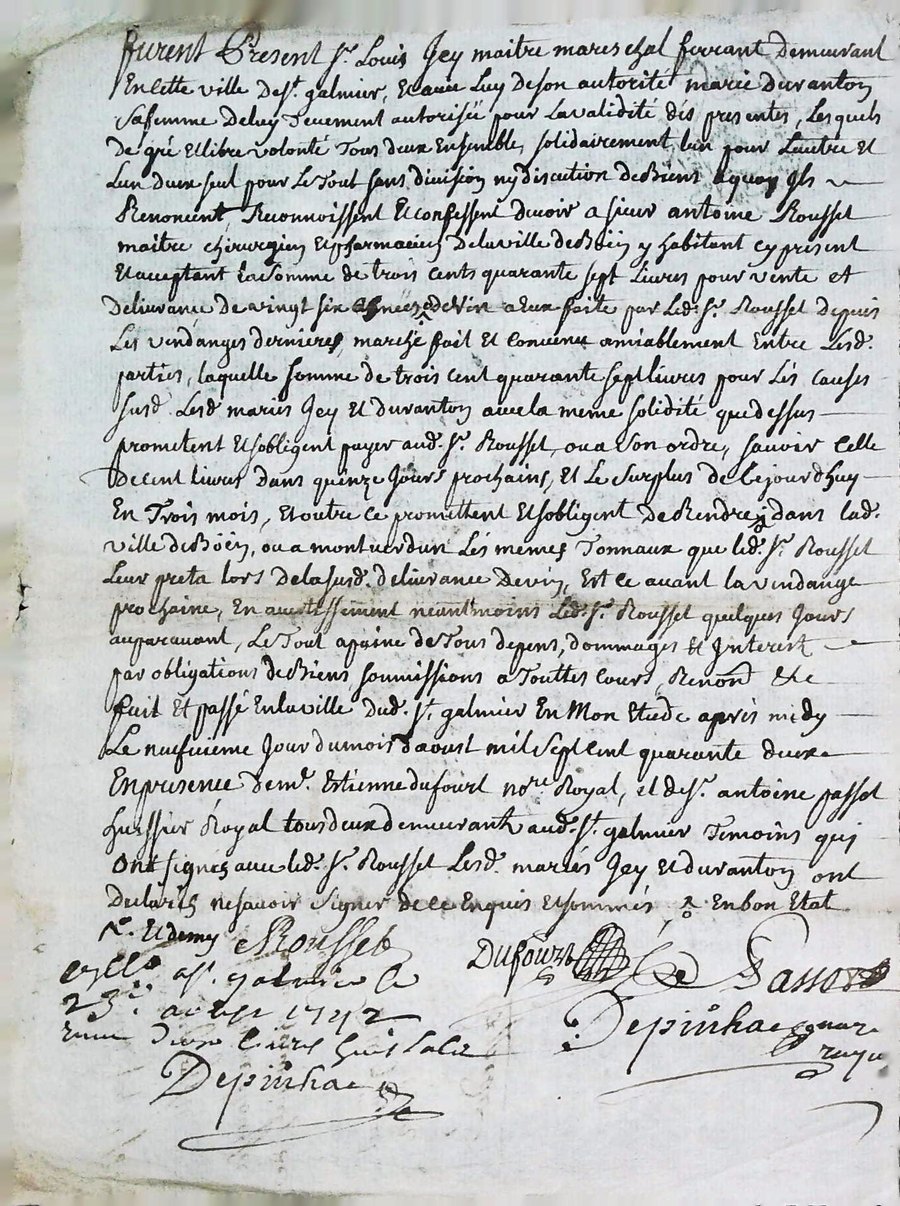 furent Present Sr. Louis Jey maitre mareschal ferrant demeurant
En cette ville de St. galmier, Et avec Luy de son autorité marie duranton
sa femme de luy deuement autorisée pour La validité dés presentes, Lesquels
De gré Et libre volonté Tous deux Ensemble, solidairement, lun pour Lautre Et
Lun deux seul pour Le Tout sans division ny discution de Biens a quoy Ils
Renoncent, Reconnoissent Et confessent devoir a sieur antoine Rousset
maitre chirurgien Et pharmacien De la ville de Boën y habitant cy present
Et acceptant La somme de trois cents quarante sept Livres pour vente et
Delivrance de vingt six asnées de vin a Eux faite par Led. Sr. Rousset depuis
Les vendanges dernieres, marché fait Et convenu amiablement Entre Lesd.
parties, laquelle somme de trois cent quarante sept livres pour Lés causes
susd. Lesd. mariés Jey Et duranton avec la meme solidité que dessus
promettent Et sobligent payer aud. Sr. Rousset, ou a son ordre, sauvoir Celle
De cent Livres dans quinze Jours prochains, Et Le surplus de Ce jourdhuy
En Trois mois, Et outre ce promettent Et sobligent de Rendre dans lad.
ville de Boën, ou a montverdun Lés mémes Tonnaux que led. Sr. Rousset
Leur preta lors de la susd. délivrance de vin, Est ce avant la vendange
prochaine, En avertissement néantmoins Led. Sr. Rousset quelques Jours
auparavant, Le Tout a paine de Tous depens, dommages Et Interest
par obligations de Biens soumissions a Touttes cours, Renon &c
fait Et passé En la ville dud. St. galmier En Mon Etude après midy
Le neufvieme Jour du mois daoust mil sept cent quarante deux
En presence de me. Estienne dufourt nore Royal, et de Sr. antoine passot
huissier Royal tous deux demeurant aud. St. galmier Temoins qui
Ont signés avec led. Sr. Rousset Lesd. mariés Jey Et duranton ont
Declarés ne savoir signer de ce Enquis Et sommés, En bon Etat
Et demy Rousset Dufourt Passot
a St. galmier le
23e. aoust 1742
livres huit sols
Depinhac
Depinhac